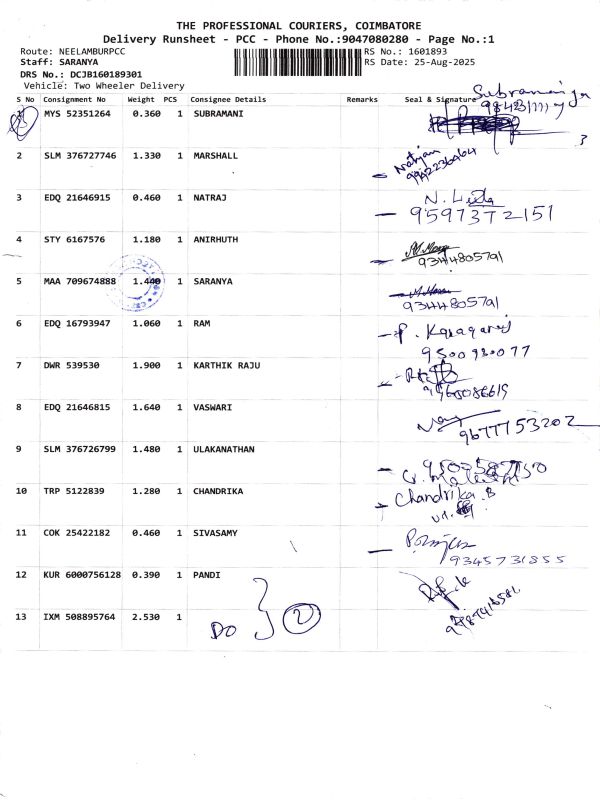 THE PROFESSIONAL COURIERS, COIMBATORE
Delivery Runsheet - PCC - Phone No.:9047080280 - Page No.:1
Route: NEELAMBURPCC RS No.: 1601893
Staff: SARANYA RS Date: 25-Aug-2025
DRS No.: DCJB160189301
Vehicle: Two Wheeler Delivery
S No Consignment No Weight PCS Consignee Details Remarks Seal & Signature
1 MYS 52351264 0.360 1 SUBRAMANI
2 SLM 376727746 1.330 1 MARSHALL Natrjan
3 EDQ 21646915 0.460 1 NATRAJ 9597372151
4 STY 6167576 1.180 1 ANIRHUTH 9344805791
5 MAA 709674888 1.440 1 SARANYA 9344805791
6 EDQ 16793947 1.060 1 RAM 9500980077
7 DWR 539530 1.900 1 KARTHIK RAJU
8 EDQ 21646815 1.640 1 VASWARI 9677753202
9 SLM 376726799 1.480 1 ULAKANATHAN
10 TRP 5122839 1.280 1 CHANDRIKA Chandrika.B
11 COK 25422182 0.460 1 SIVASAMY 9345731855
12 KUR 6000756128 0.390 1 PANDI
13 IXM 508895764 2.530 1 DO 2